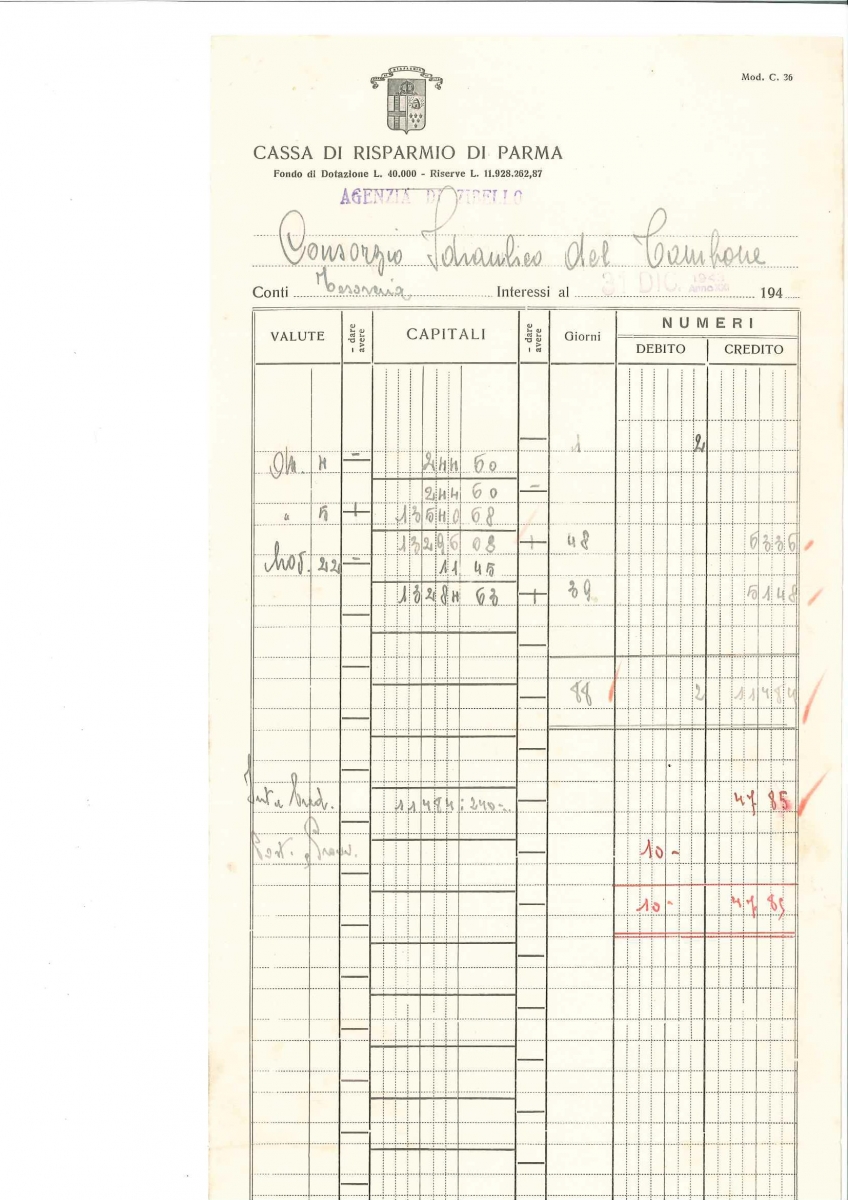 Mod. C. 36
CASSA DI RISPARMIO DI PARMA
Fondo di Dotazione L. 40.000 - Riserve L. 11.928.262,87
AGENZIA DI ZIBELLO
Consorzio Idraulico del
Conti Tesoreria Interessi al 31 DIC. 194
VALUTE - dare avere CAPITALI - dare avere Giorni NUMERI
DEBITO CREDITO
1 2
Ott. 4 - 244 60
244 60 -
" 5 + 13540 68
13296 08 + 48 6336
Nov. 22 - 11 45
13284 63 + 39 5148
88 2 11484
Int. a Cred. 11484 : 240 - 47 85
10 -
10 - 47 85